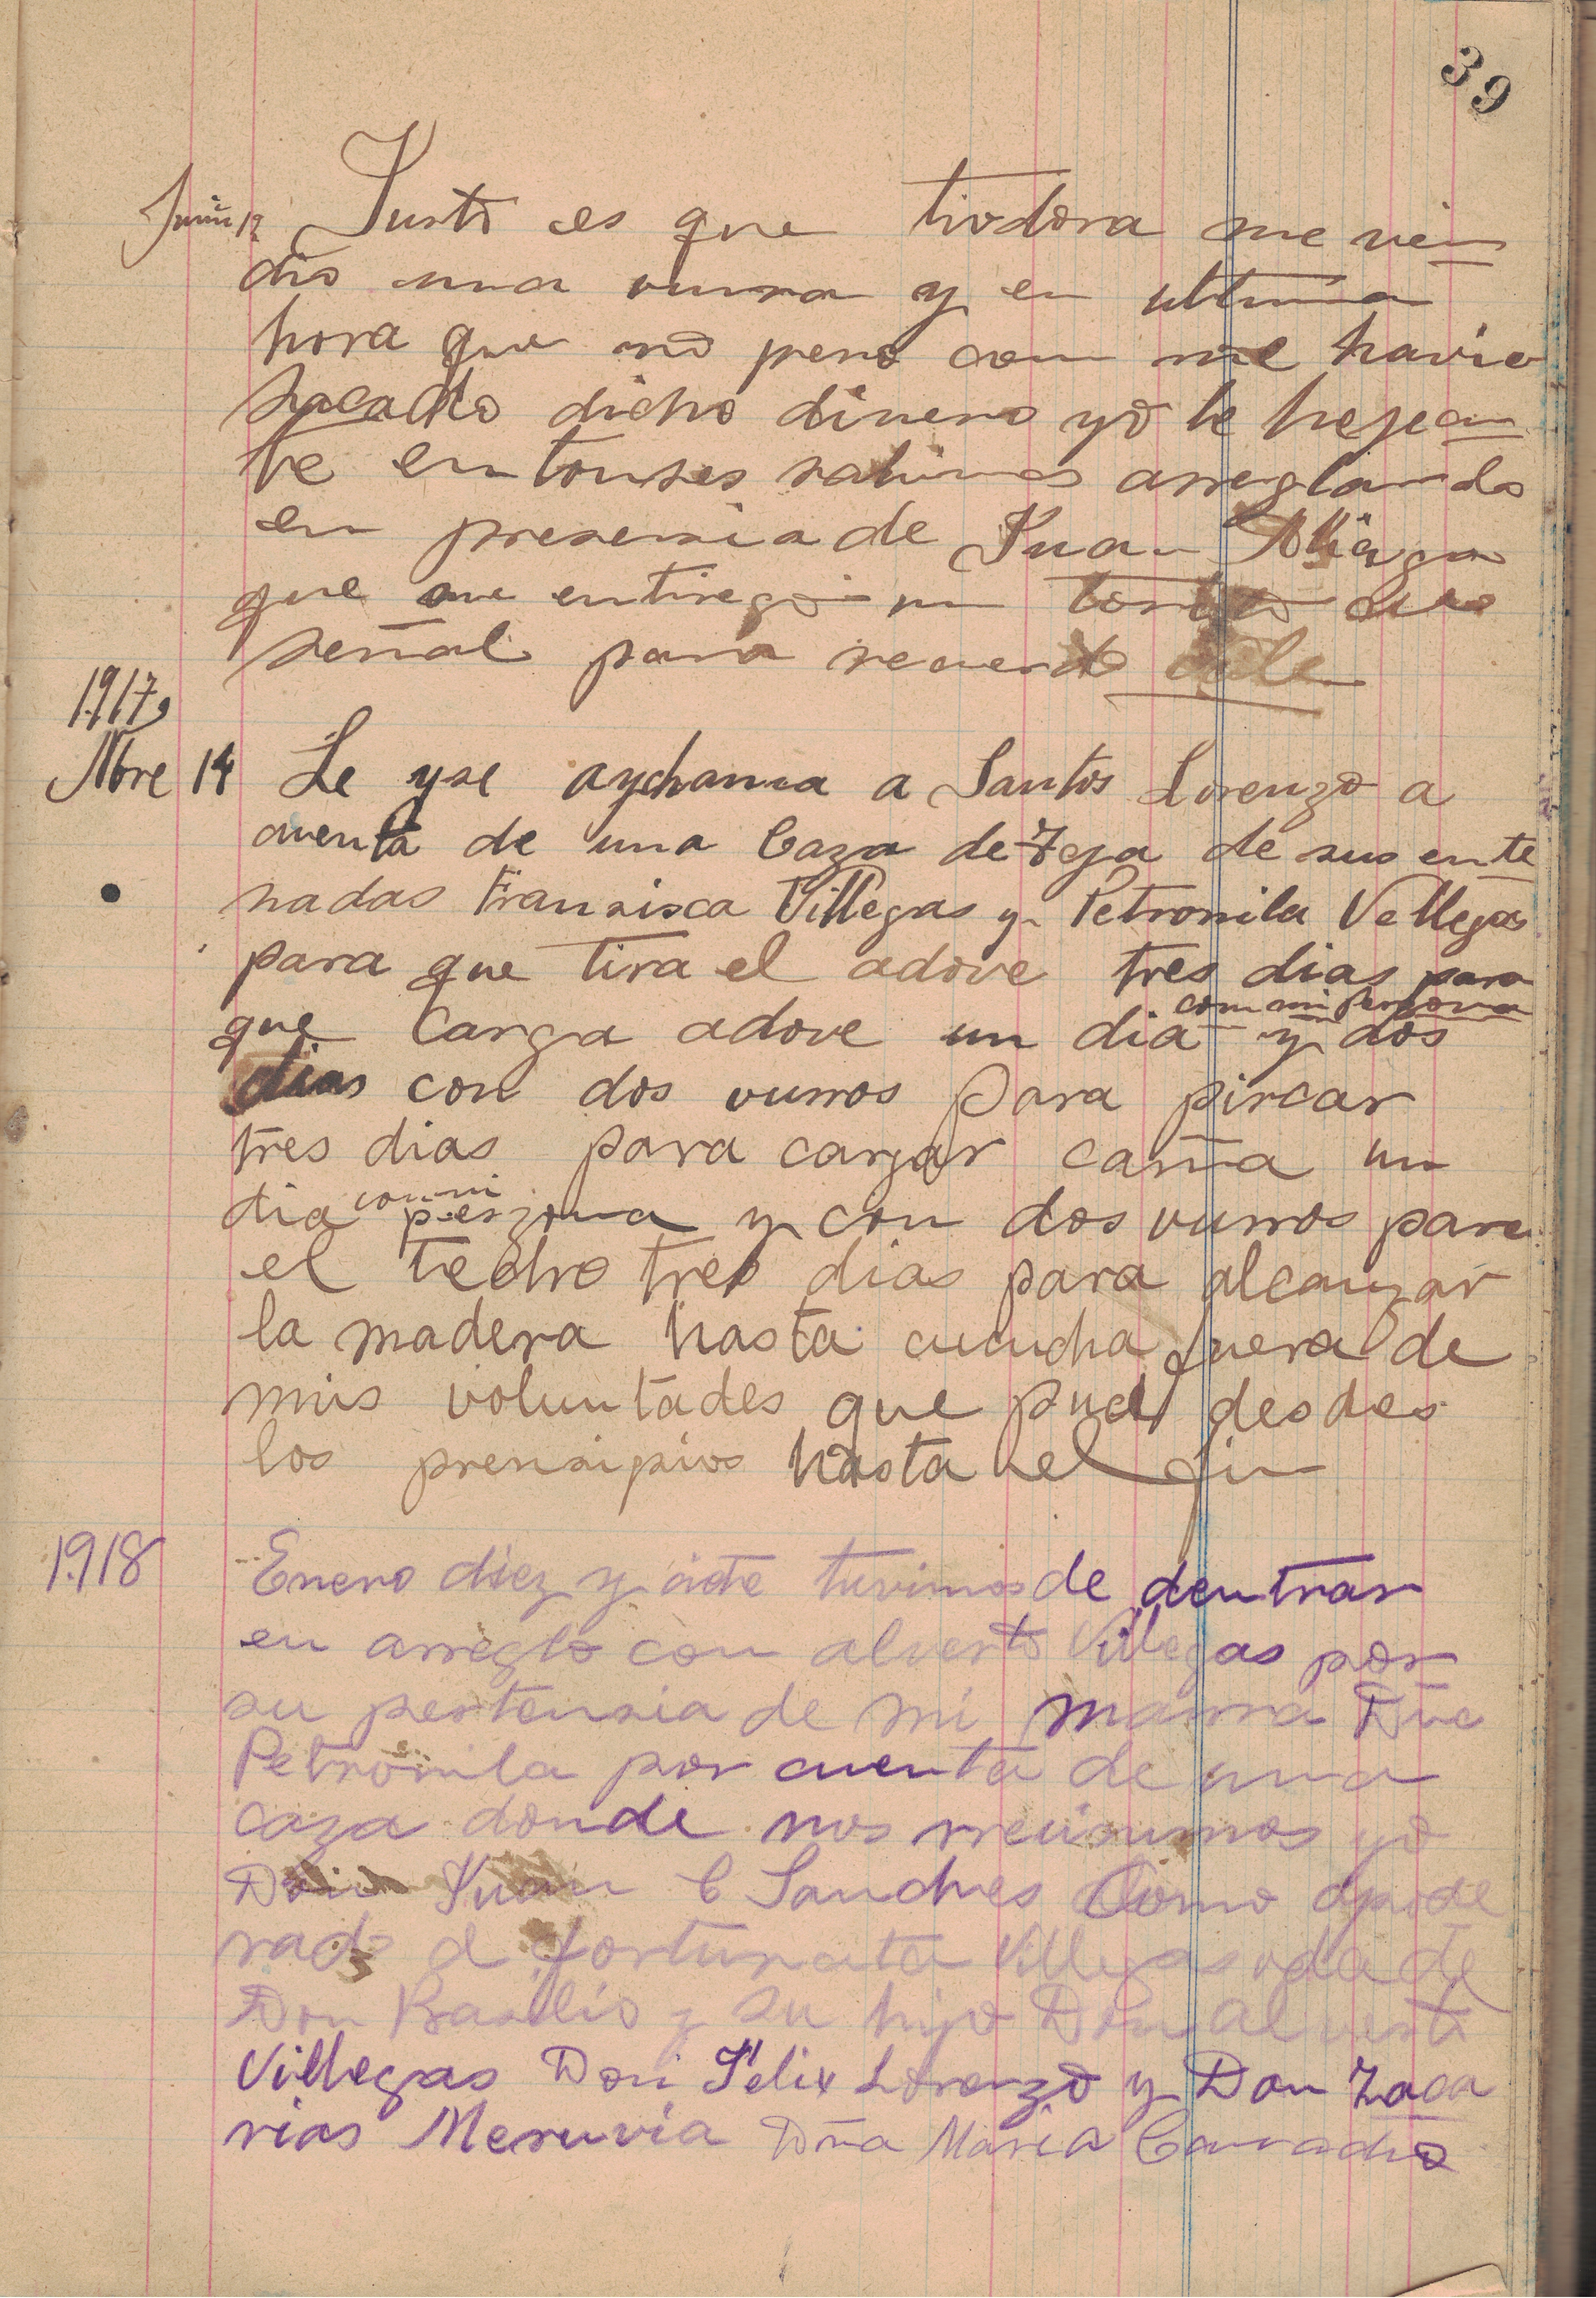 39
Junio 12 Justo es que tiodora me ven
dio una vurra y en ultima
hora que no pero com me havia
sacado dicho dinero yo le hejecu
te entonses salimos arreglando
en presensia de Juan Aliaga
que me entrego un torito de
señal para recuerdo vale
1917,
Nbre 14 Le yse aychanca a Santos Lorenzo a
cuenta de una Caza de Teja de sus ente
nadas Fransisca Villegas y Petronila Vellegas
para que tira el adove tres dias para
que Carga adove un dia con mi Persona y dos
dias con dos vurros para pircar
tres dias para cargar caña un
dia con mi perzona y con dos vurros para
el techo tres dias para alcanzar
la madera hasta cucucha fuera de
mis voluntades que pude desdes
los prensipios hasta el fin
1918 Enero diez y siete tuvimos de dentrar
en arreglo con alverto Villegas por
su pertensia de mi mama Dña
Petronila por cuenta de una
caza donde nos rreunimos yo
Don Juan C Sanches Como apode
rado d fortunata Villegas vda de
Don Basilio y su hijo Don alverto
Villegas Don Felix Lorenzo y Don Zaca
rias Meruvia Dña Maria Camacho